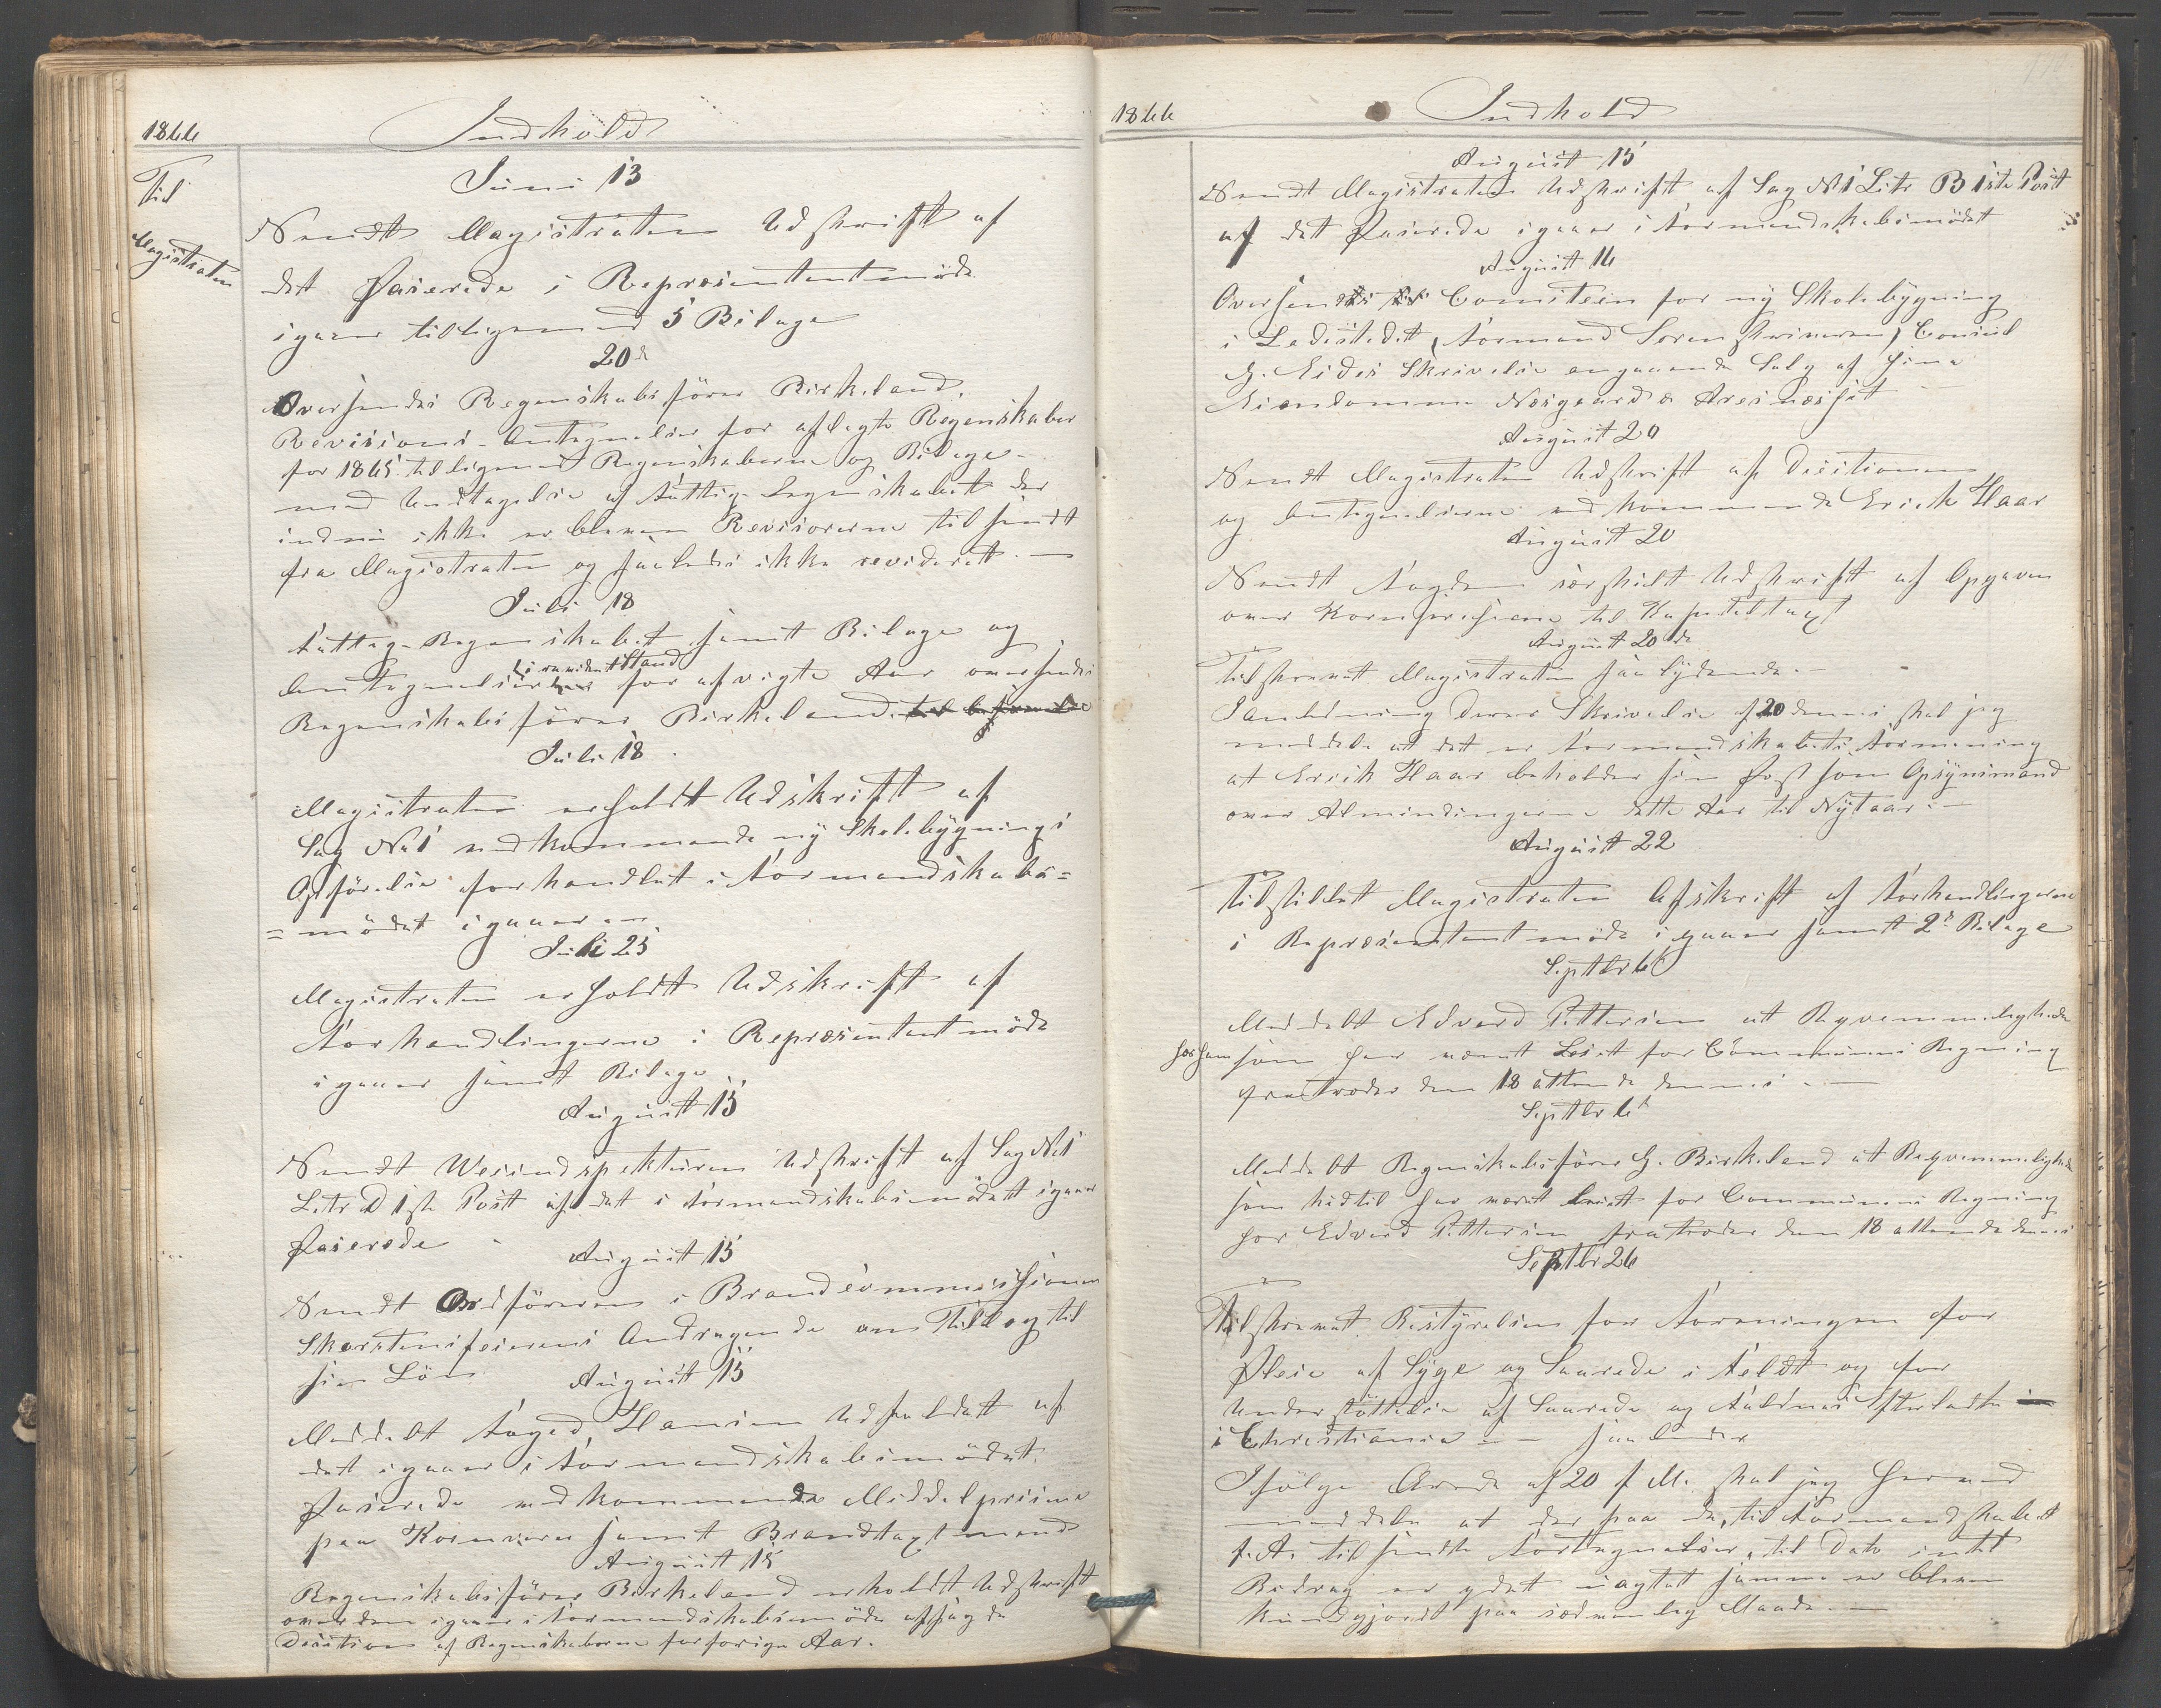 1866
Indhold
Til
Magistraten
Juni 13
Sendt Magistraten Udskrift af
det Passerede i Representantmöde
igaar tilligemed 5 Bilage
20de
Oversendes Regenskabsförer Birkeland,
Revisions-Antegnelser for aflagte Regenskaber
for 1865 tilligemed Regenskaberne og Bilage -
med Undtagelse af Fattig-Regenskabet der
indnu ikke er bleven Revisorerne tilsendt
fra Magistraten og saaledes ikke revideret. -
Juli 18
Fattig-Regenskabet samt Bilage og
i revidert Stand
Antegnelser for afvigte Aar oversendes
Regenskabsförer Birkeland
Juli 18
Magistraten erholdt Udskrift af
Sag No 1 vedkommende ny Skolebygnings
Opförelse forhandlet i Formandskabs=
=mödet igaar -
Juli 25
Magistraten erholdt Udskrift af
Forhandlingerne i Represæntantmöde
igaar samt Bilage
August 15
Sendt Veiindspekteuren Udskrift af Sag No 1
Litr D 1ste Post af det i Formandskabsmödet igaar
Passerede
August 15
Sendt Ordföreren i Brandcommissionen
Skorstensfeierens Andragende om Tillæg til
sin Lön
August 15
Meddelt Foged Hansen Udfaldet af
det igaar i Formandskabsmödet
Passerede vedkommende Middelpriserne
paa Kornvarer samt Brandtaxtmænd
August 15
Regenskabsförer Birkeland erholdt Udskrift
over den igaar i Formandskabsmöde afsagde
Desition af Regenskaberne for forrige Aar.
1866
Indhold
August 15
Sendt Magistraten Udskrift af Sag No 1 Litr B 1ste Post
af det Passerede igaar i Formandskabsmödet
August 16
Oversendes Comiteen for ny Skolebygning
i Ladestedet, (Formand Sorenskriveren) Consul
G. Eides Skrivelse angaaende Salg af sine
Eiendomme Nesgaard &
August 20
Sendt Magistraten Udskrift af Desitionen
og Antegnelserne vedkommende Erick Haar
August 20
Sendt Fogden særskilt Udskrift af Opgaven
over Kornpriserne til Kapitelstaxt
August 20de
Tilskrevet Magistraten saalydende. -
I Anledning deres Skrivelse af 20 dennes skal jeg
meddele at det er Formandskabets Formening
at Erick Haar beholder sin Post som Opsynsmand
over Almindingerne dette Aar til Nytaar. -
August 22
Tilstillet Magistraten Afskrift af Forhandlingerne
i Represæntantmöde igaar samt 2de Bilage
Septbr 6
Meddelt Edvard Pettersen at Beqvemmelighederne
hos ham som har været Leiet for Communens Regning
fratræder den 18 attende dennes. -
Septbr 6
Meddelt Regenskabsförer G. Birkeland at Beqvemmeligheden
som hidtil har været leiet for Communens Regning
hos Edvard Pettersen fratræder den 18 attende dennes
Septbr 26
Tilskrevet Bestyrelsen for Foreningen for
Pleie af Syge og Saarede i Feldt og for
Understöttelse af Saarede og Faldnes Efterladte
i Christiania - saaledes
Ifölge Ærede af 20 f. M. skal jeg herved
meddele at der paa de, til Formandskabet
f. A. tilsendte Fortegnelser, til Dato intet
Bidrag er ydet uagtet samme er bleven
kundgjordt paa sædvanlig Maade. -